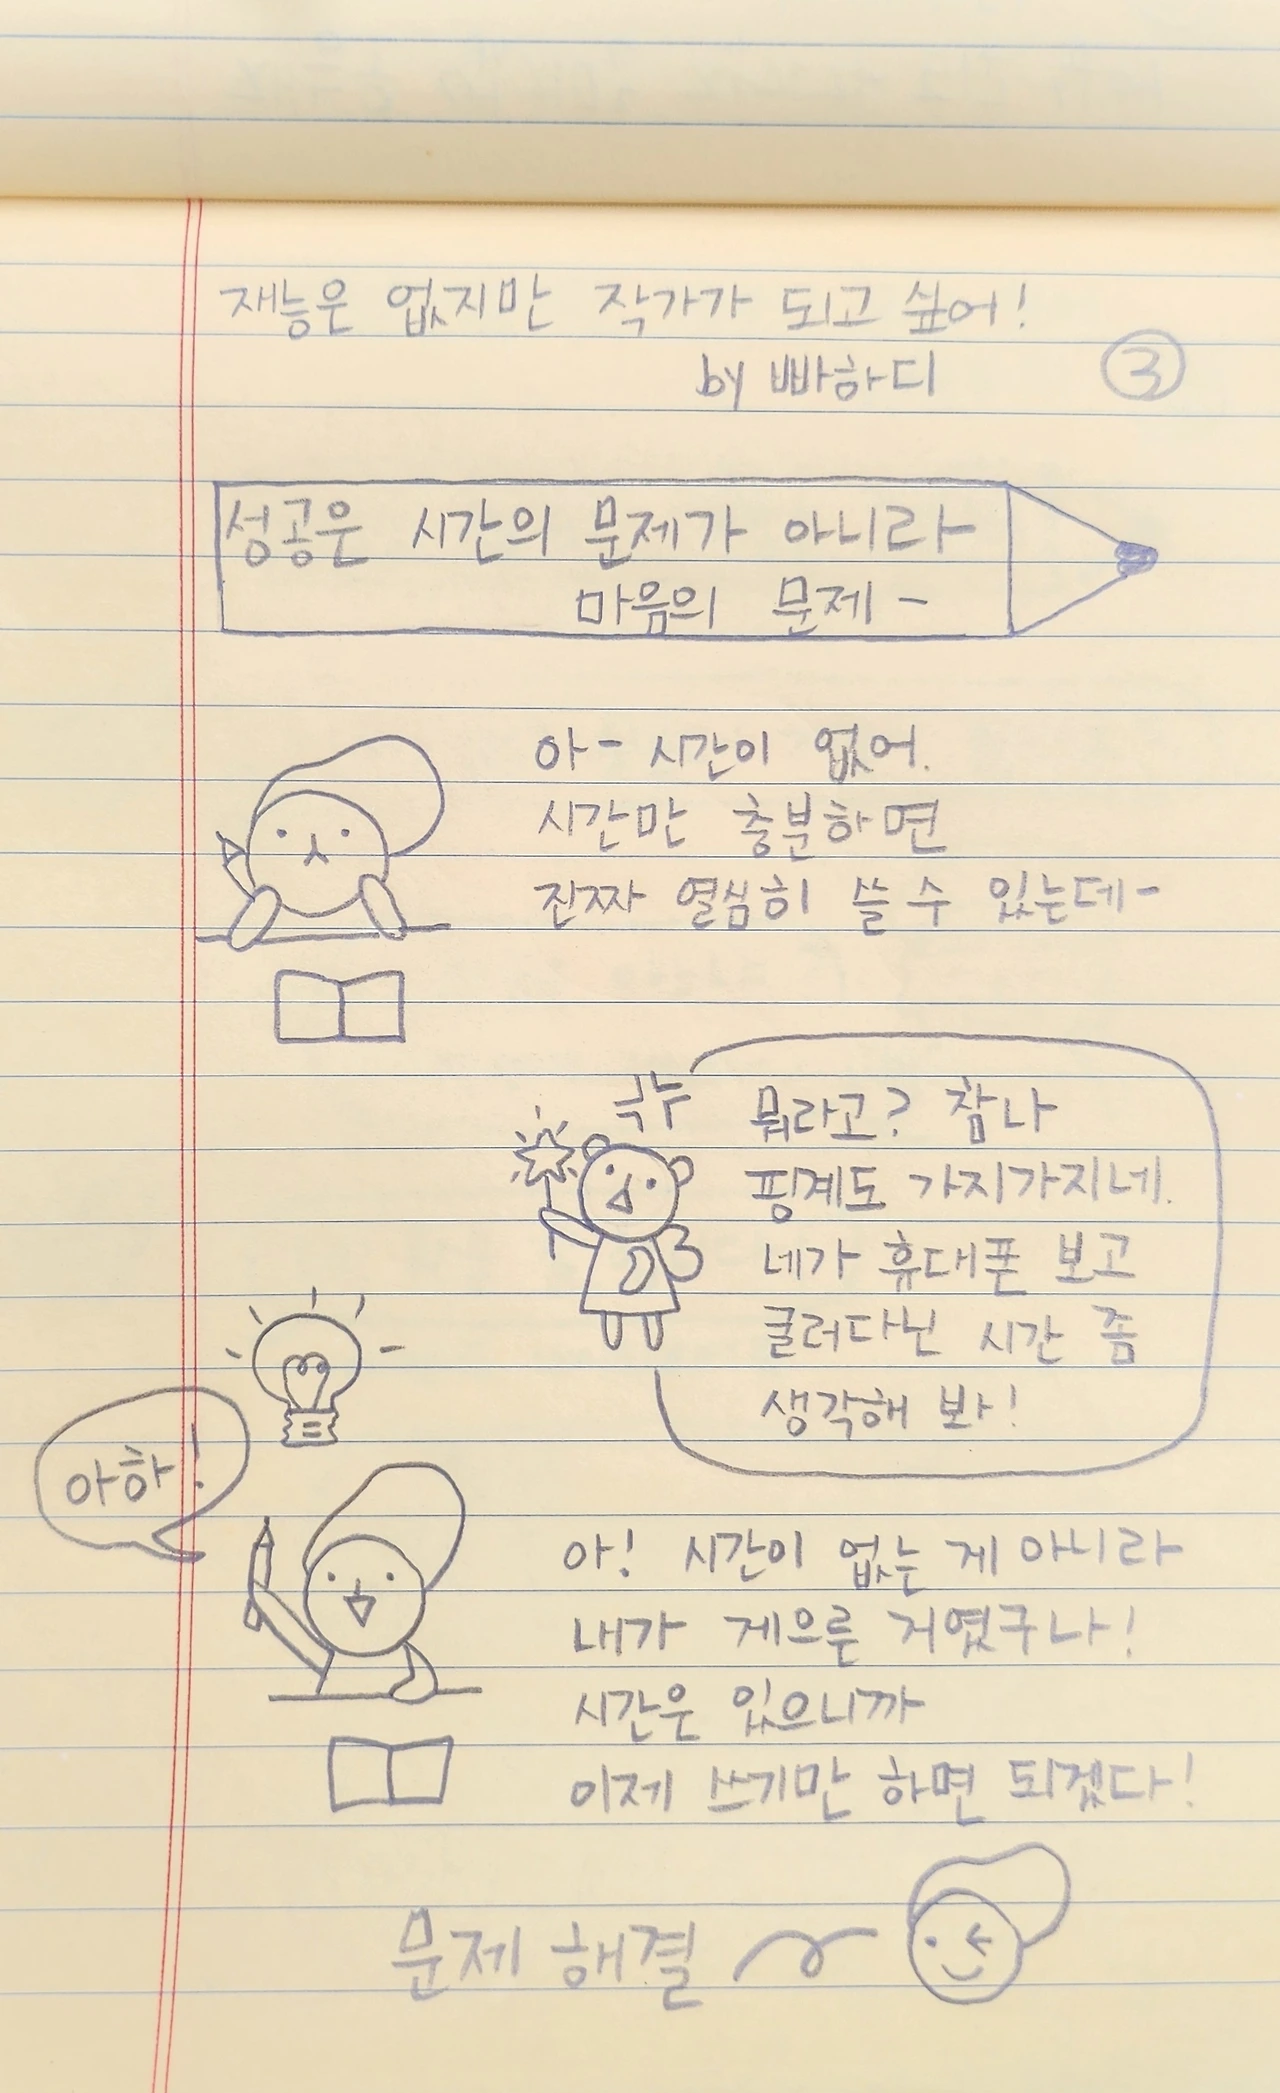 재능은 없지만 작가가 되고 싶어!
by 빠하디
③
성공은 시간의 문제가 아니라
마음의 문제 -
아- 시간이 없어.
시간만 충분하면
진짜 열심히 쓸 수 있는데-
뭐라고? 참나
핑계도 가지가지네.
네가 휴대폰 보고
굴러다닌 시간 좀
생각해 봐!
아하!
아! 시간이 없는 게 아니라
내가 게으른 거였구나!
시간은 있으니까
이제 쓰기만 하면 되겠다!
문제 해결